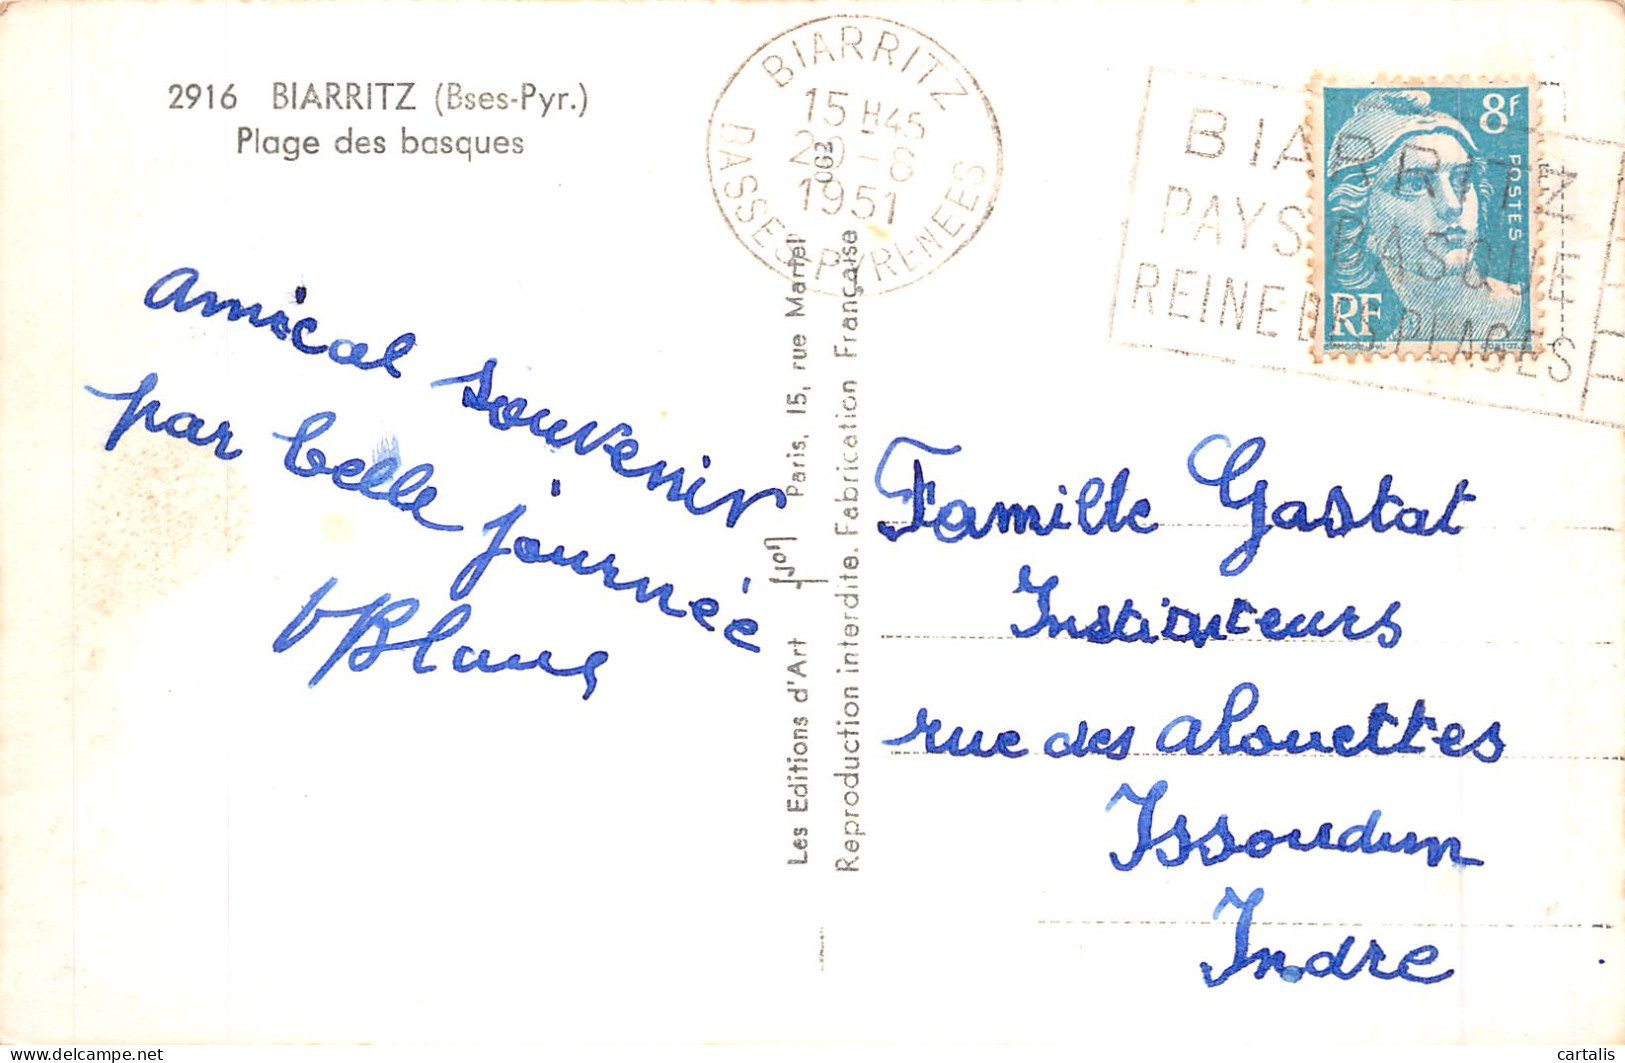 2916 BIARRITZ (Bses-Pyr.)
Plage des basques
BIARRITZ
15 H45
1951
BASSES-PYRENEES
BIARRITZ
PAYS BASQUE
REINE DES PLAGES
8F
POSTES
RF
amical souvenir
par belle journée
Blanc
Les Editions d'Art Yvon Paris, 15, rue Martel
Reproduction interdite. Fabrication Française
Famille Gastat
Instituteurs
rue des alouettes
Issoudun
Indre
cartalis